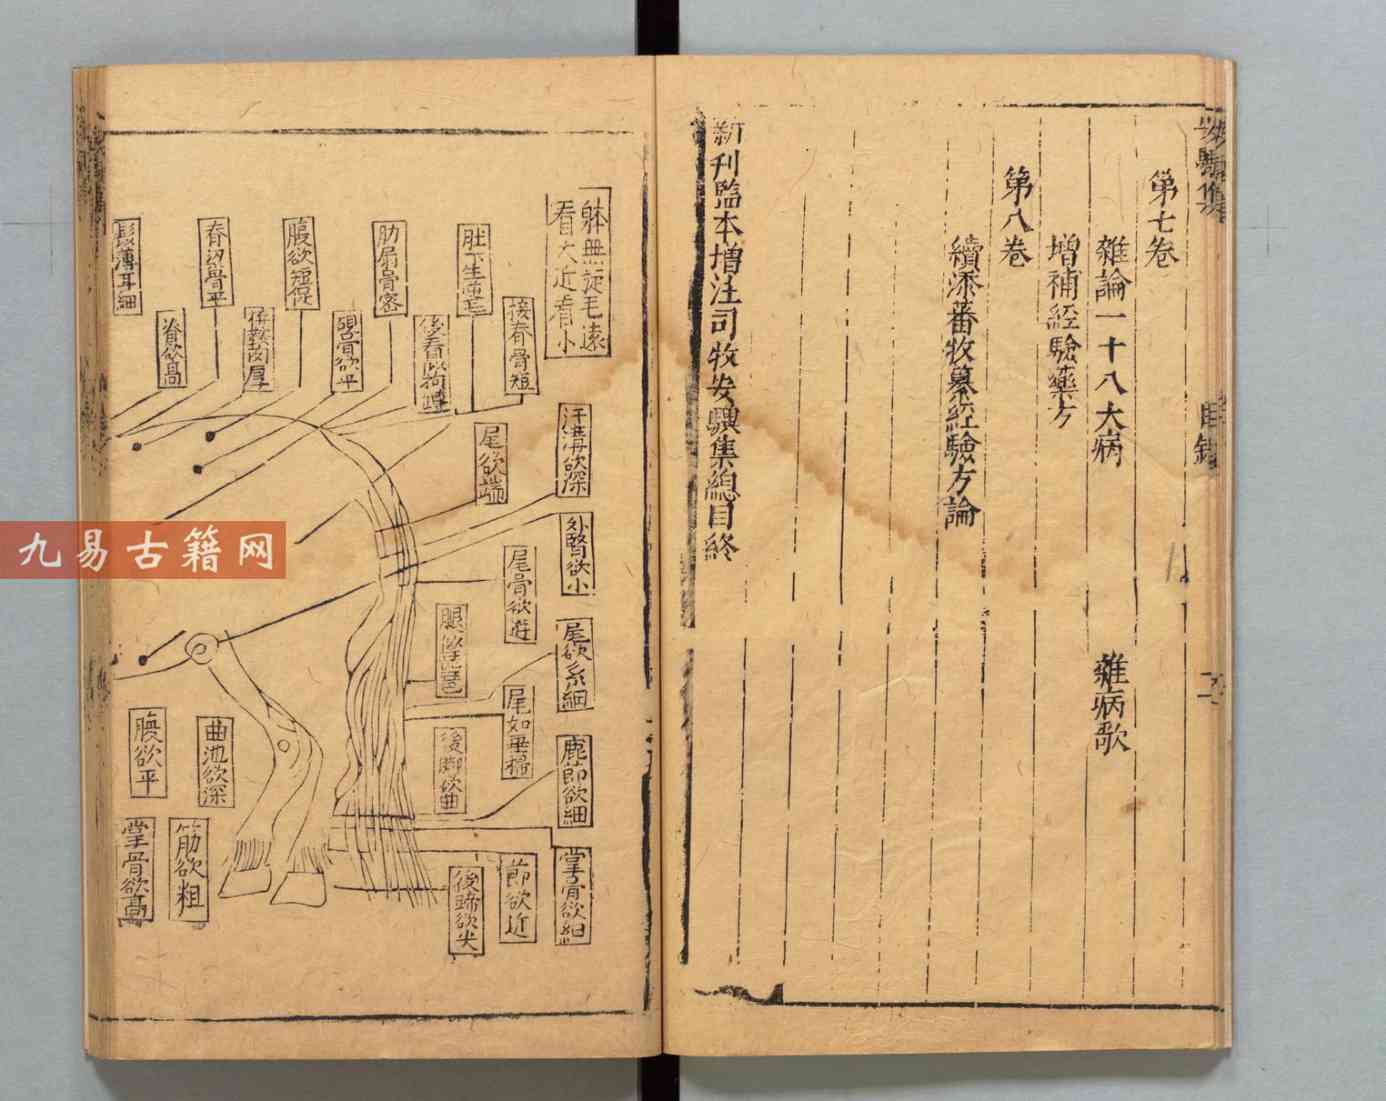 第七卷
雜論一十八大病
雜病歌
增補經驗藥方
第八卷
續添蕃牧纂經驗方論
新刊監本增注司牧安驥集總目終
目錄
躰無旋毛遠
看大近看小
接脊骨短
肚下生逆毛
肋扇骨密
腹欲短促
脊梁骨平
鬃薄耳細
脊欲高
硯骨欲平
汗溝欲深
尾欲端
外腎欲小
尾骨欲遊
腿似琵琶
尾欲糸細
尾如垂掃
後脚欲曲
鹿節欲細
掌骨欲細
節欲近
後蹄欲尖
曲池欲深
腹欲平
筋欲粗
掌骨欲高
九易古籍网